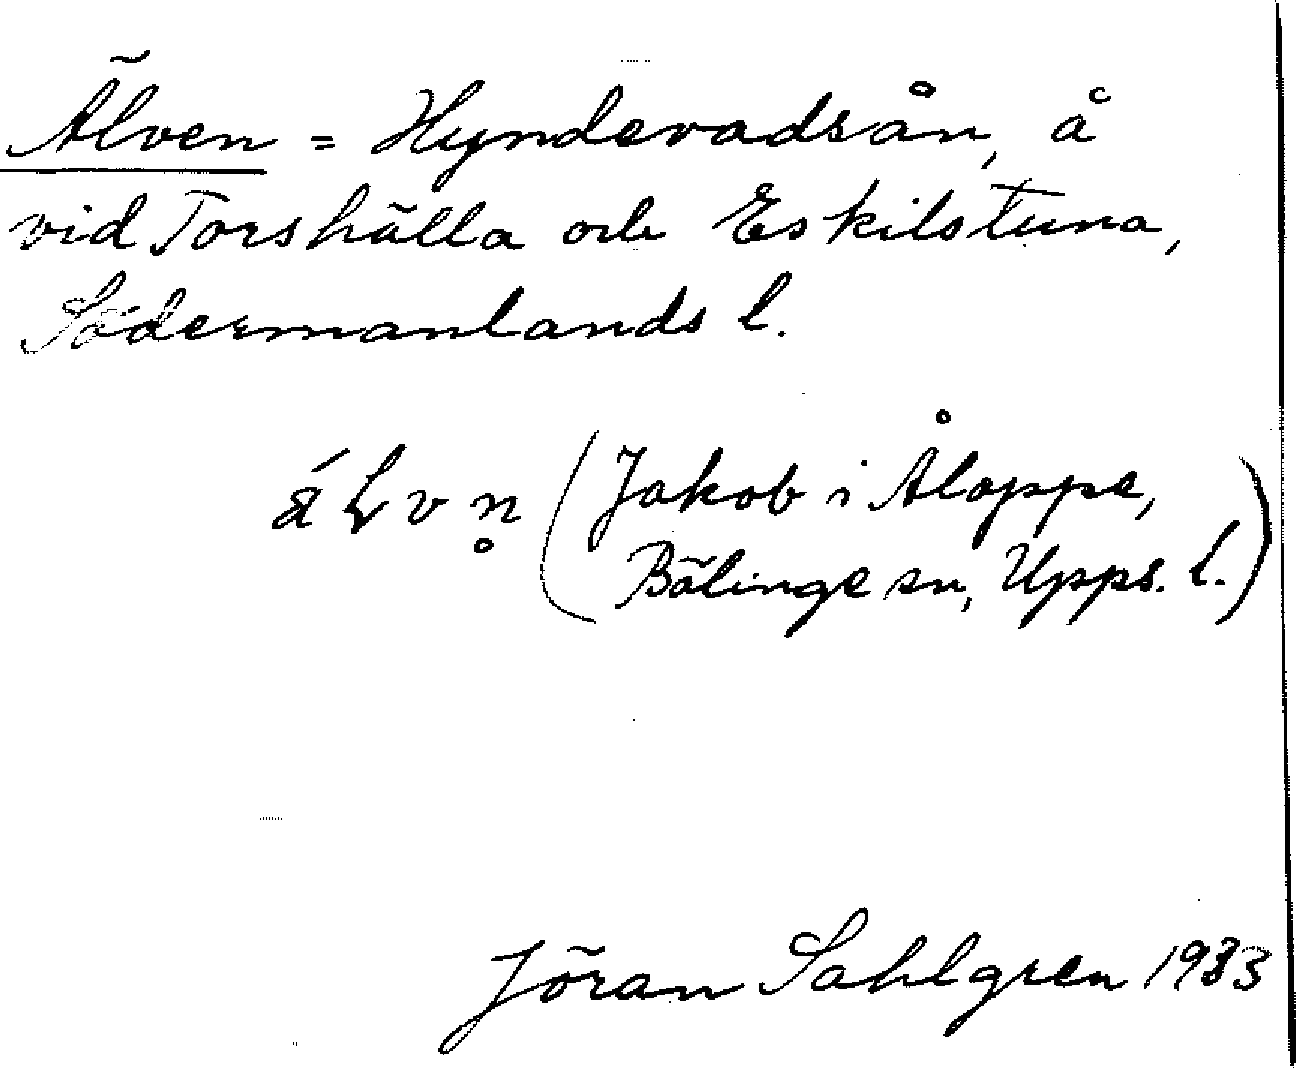 Älven = Hyndevadsån, å
vid Torshälla och Eskilstuna,
Södermanlands l.
ä́ L v n̥ (Jakob i Åloppe,
Bälinge sn, Upps. l.)
Jöran Sahlgren 1933